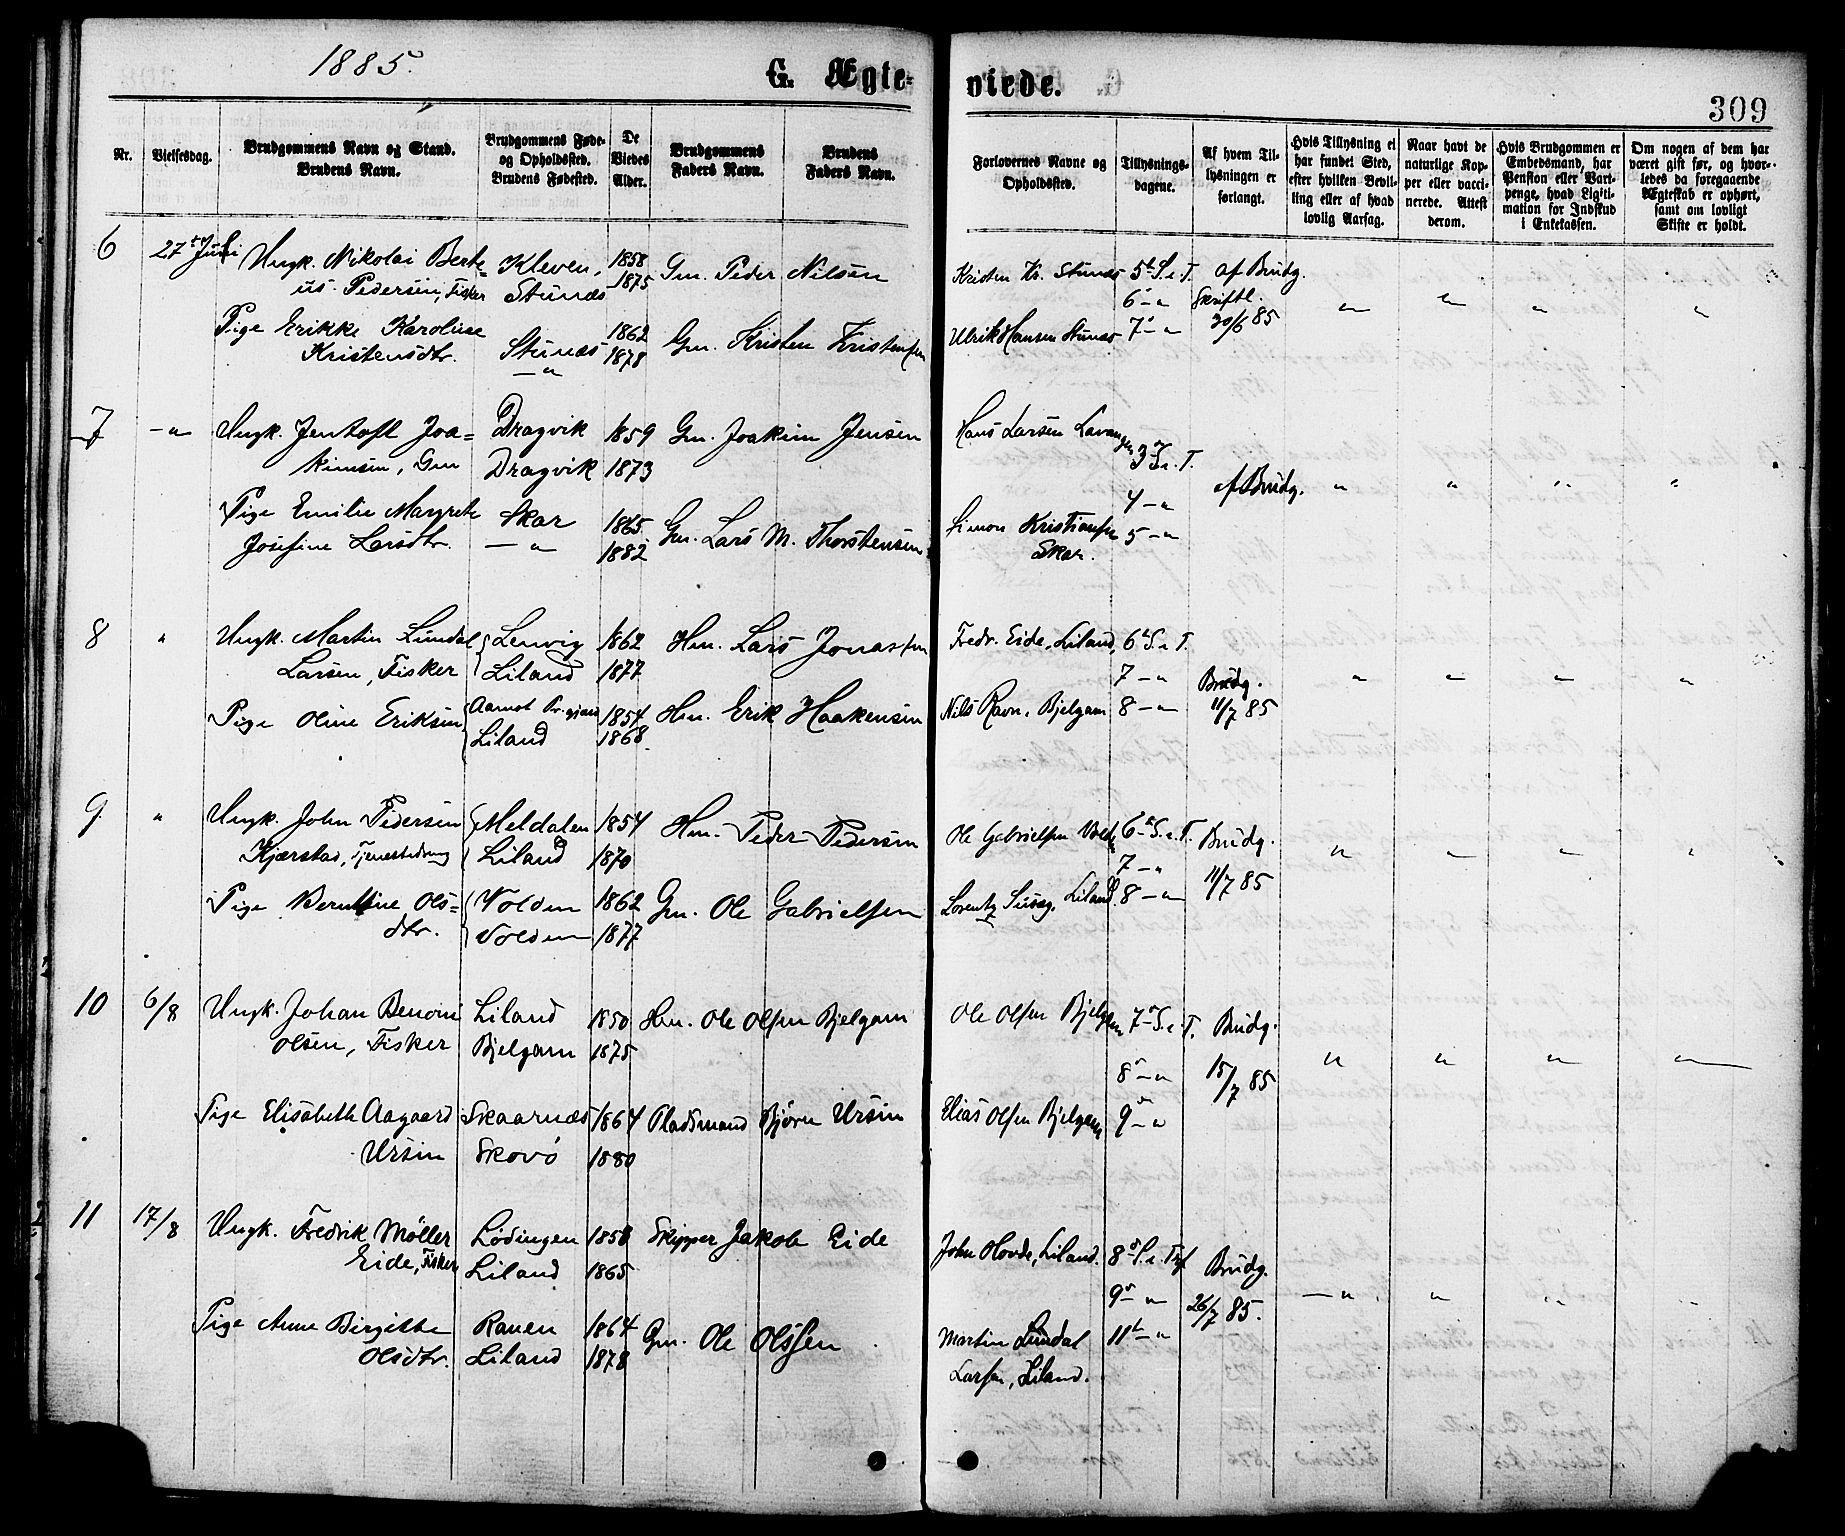 1885.
G. Ægte=
viede.
309
Nr.
Vielsesdag.
Brudgommens Navn og Stand.
Brudens Navn.
Brudgommens Føde-
og Opholdssted.
Brudens Fødested.
De
Viedes
Alder.
Brudgommens
Faders Navn.
Brudens
Faders Navn.
Forlovernes Navne og
Opholdssted.
Tillysnings-
dagene.
Af hvem Til-
lysningen er
forlangt.
Hvis Tillysning ei
har fundet Sted,
efter hvilken Bevil-
ling eller af hvad
lovlig Aarsag.
Naar havt de
naturlige Kop-
per eller vacci-
nerede. Attest
derom.
Hvis Brudgommen er
Embedsmand, har
Pension eller Vart-
penge, hvad Ligiti-
mation for Indskud
i Enkekassen.
Om nogen af dem har
været gift før, og hvor-
ledes da foregaaende
Ægteskab er ophørt,
samt om lovligt
Skifte er holdt.
6 27 Juli Ungk. Nikolai Berte= Kleven, 1858 Gm. Peder Nilsen Kristen Kr. Stunes 5 S. e. T. af Brudg.
us Pedersen, Fisker Stunes 1875 6 - " Skriftl.
Pige Erikke Karoline Stunes 1862 Gm. Kristen Kristensen Ulrik Hansen Stunes 7 - " 30/6 85 " " " "
Kristensdtr. - " 1878
7 - " Ungk. Jentoft Joa= Dragvik 1859 Gm. Joakim Jensen Hans Larsen Lavangen 3 S. e. T.
kimsen, Gm Dragvik 1873 4 - " af Brudg. " " " "
Pige Emilie Margrete Skar 1865 Gm. Lars M. Thorstensen Simon Kristiansen 5 - "
Josefine Larsdtr. - " 1882 Skar.
8 " Ungk. Martin Lundal Lenvig 1862 Hm. Lars Jonassen Fredr. Eide, Liland, 6 S. e. T.
Larsen, Fisker Liland 1877 7 - " Brudg. " " " "
Pige Oline Eriksen Aamot 1854 Hm. Erik Haakensen Nils Ravn, Bjelgam 8 - " 11/7 85
Liland 1868
9. " Ungk. John Pedersen Meldalen 1854 Hm. Peder Pedersen Ole Gabrielsen Volden 6 S. e. T. Brudg.
Kjærstad, Liland 1870 7 - " " " " "
Pige Berntine Ols= Volden 1862 Gm. Ole Gabrielsen Lorentz Liland. 8 - " 11/7 85
dtr. Volden 1877
10 6/8 Ungk. Johan Benoni Liland 1850 Hm. Ole Olsen Bjelgam Ole Olsen Bjelgam 7 S. e. T. Brudg.
Olsen, Fisker Bjelgam 1875 8 - " 15/7 85 " " " "
Pige Elisabeth Aagaard Skaarnæs 1864 Pladsmand Bjørn Ursin Elias Olsen Bjelgam 9 - "
Ursin Skovø 1880
11 17/8 Ungk. Fredrik Møller Lødingen 1850 Skipper Jakob Eide John Hovde, Liland. 8 S. e. Tref Brudg.
Eide, Fisker Liland 1865 9 - " 26/7 85. - " " " -
Pige Anne Birgitte Ranen 1864 Gm. Ole Olssen Martin Lundal 11 - "
Olsdtr. Liland 1878 Larsen, Liland.